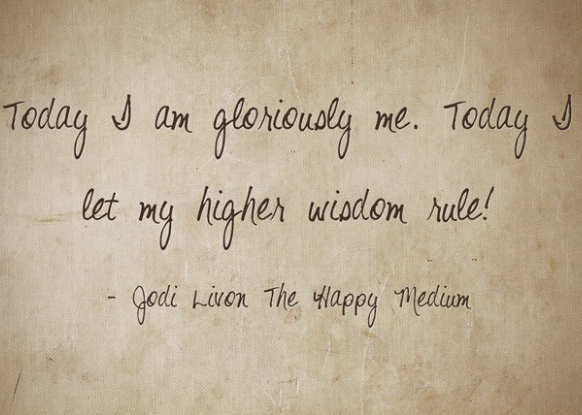 Today I am gloriously me. Today I
let my higher wisdom rule!
- Jodi Livon The Happy Medium